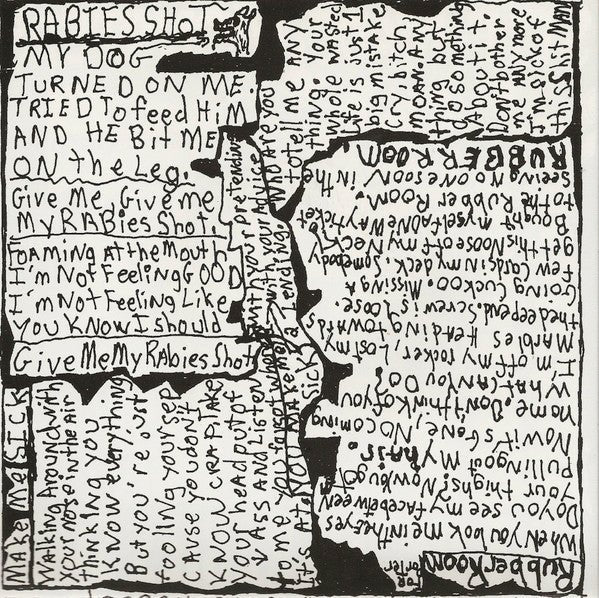 RABIES SHOT
MY DOG
TURNED ON ME.
TRIED To feed HiM
AND HE Bit ME
ON the Leg.
Give Me, Give me
My RABies Shot.
FOAMING At the Mouth
I'm Not Feeling GOOD
I'm Not Feeling Like
You Know I Should
Give Me My RAbies Shot
MAke Me SICK
Walking Around with
your nose in the air
thinking you
Know everything
But you're Just
fooling your sep
Cause you don't
KNOW CRAP. TAKE
Your head out of
ASS AND Listen
to me you forgot who
Who ARE you
to tell me ANY
thing. Your
whole wasted
life is Just 1
big mistake
Cry, bitch,
moan. Any
thing but
Do something
About it.
Don't bother
me any more
I'm sick of
this shit MAN
RubbeR RooM
FOR
Porter.
When you look me in the Eyes
Do you see my face between
Your thighs? Now bug
Pulling out My hair.
Now it's Gone, No coming
home. Don't think of you
What CAn You Do?
I'm off my rocker, Lost my
Marbles Heading towards
the deep end. Screw is loose.
Going Cuckoo. Missing A
few Cards in my deck. Somebody
get this Noose off my Neck
Bought myself A ONe WAY ticket
to the Rubber Room.
seeing No one soon in the
RUBBER ROOM